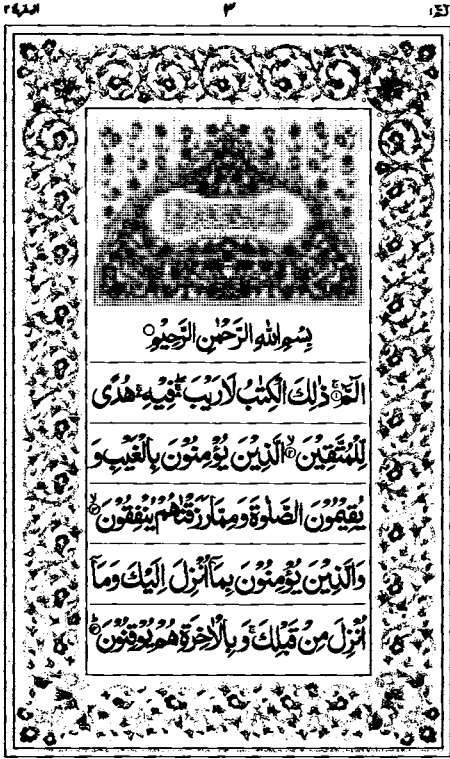 الٓمّٓ ۱
۳
البقرة ۲
بِسْمِ اللهِ الرَّحْمٰنِ الرَّحِيْمِ ○
الٓمّٓ ۚ۝۱ ذٰلِكَ الْكِتٰبُ لَا رَيْبَ ۛۖ فِيْهِ ۛۚ هُدًى
لِّلْمُتَّقِيْنَ ۙ۝۲ الَّذِيْنَ يُؤْمِنُوْنَ بِالْغَيْبِ وَ
يُقِيْمُوْنَ الصَّلٰوةَ وَمِمَّا رَزَقْنٰهُمْ يُنْفِقُوْنَ ۙ۝۳
وَالَّذِيْنَ يُؤْمِنُوْنَ بِمَآ اُنْزِلَ اِلَيْكَ وَمَآ
اُنْزِلَ مِنْ قَبْلِكَ ۚ وَبِالْاٰخِرَةِ هُمْ يُوْقِنُوْنَ ۭ۝۴